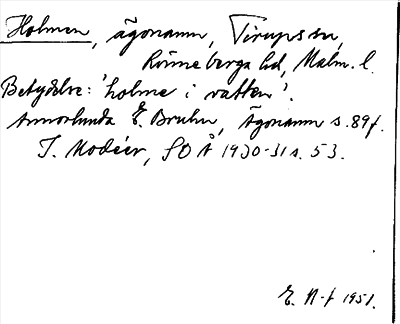 Holmen, ägonamn, Tirups sn,
Rönnebergs hd, Malm. l.
Betydelse: 'holme i vatten'.
Annorlunda E. Bruhn, Ägonamn s. 89f.
I. Modéer, SOÅ 1930-31 s. 53.
E. N-f 1951.